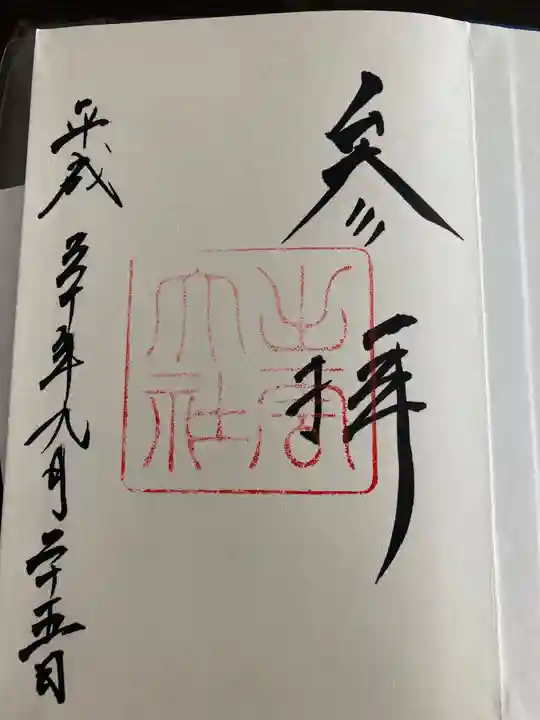 参拝
出雲大社
平成三十年九月二十五日